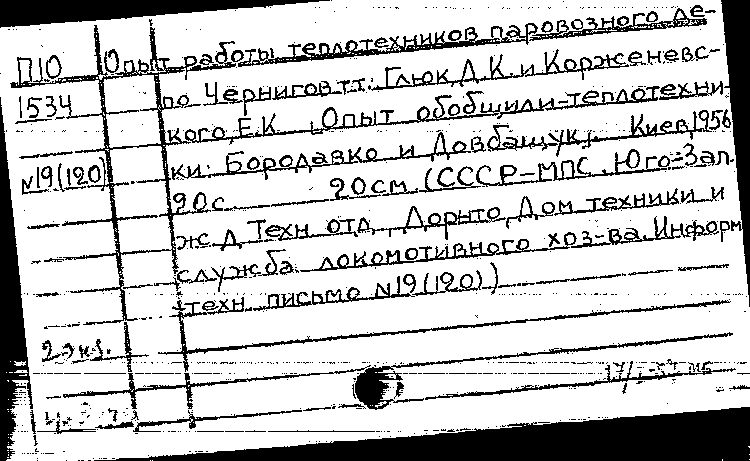 П10
1534
№19(120)
Опыт работы теплотехников паровозного де-
по Чернигов тт: Глюк, Д.К. и Корженевс-
кого, Е.К. [Опыт обобщили-теплотехни-
ки: Бородавко и Довбащук]. Киев, 1956
20с. 20см. (СССР-МПС. Юго-Зап.
ж.д. Техн. отд., Дорнто, Дом техники и
служба локомотивного хоз-ва. Информ
-техн. письмо №19(120))
2 экз.